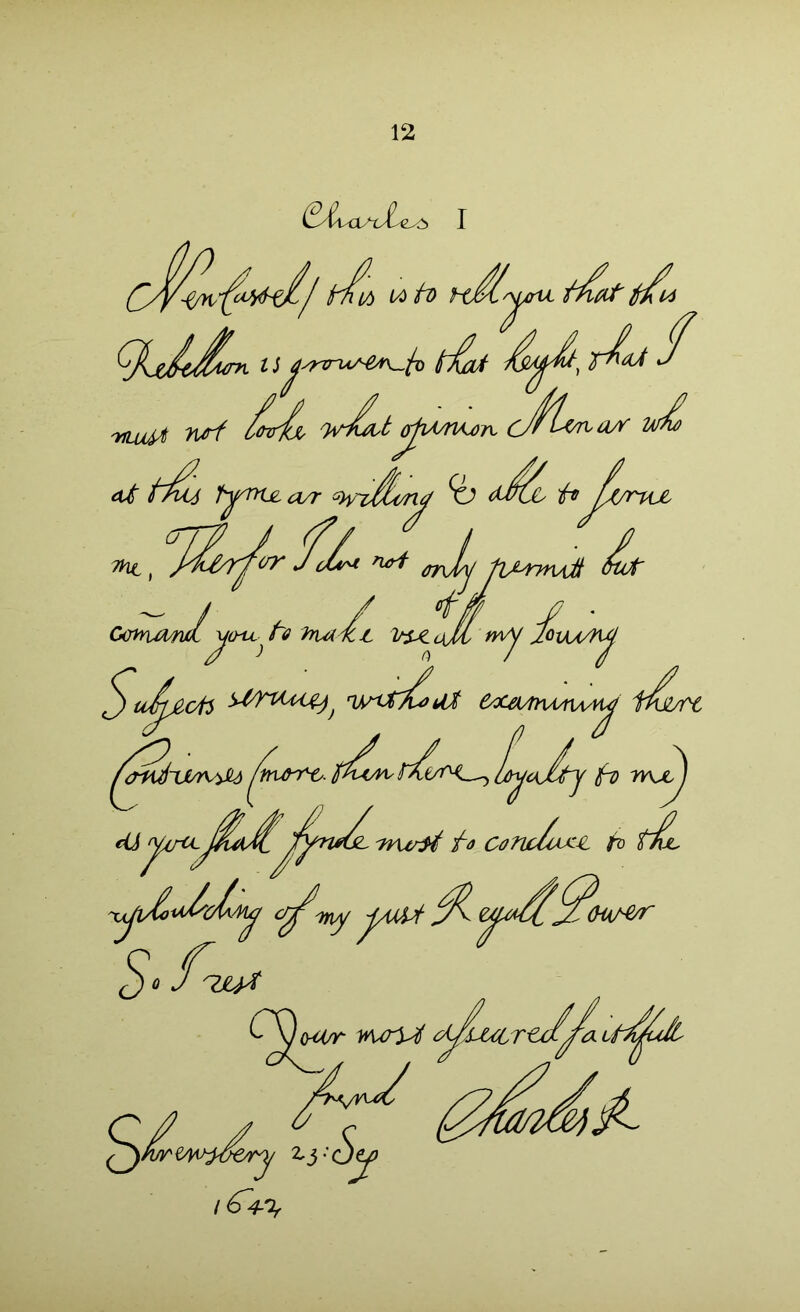 12
Charles I
Newcastell this is to tell you that this
Rebellion is growen to that height, that I
must not looke what opinion Men ar who
at this tyme ar willing & able to serve
me, Therfor I doe not only permitt but
comand you, to make use of all my loving
Subjects services, without examining there
Contienses (more then there loyalty to me)
as you shall fynde most to conduce to the
uphoulding of my just Regall Power
So I rest
Your most asseured faithfull
frend
Charles R
Shrewsbery 23: Sep
1642